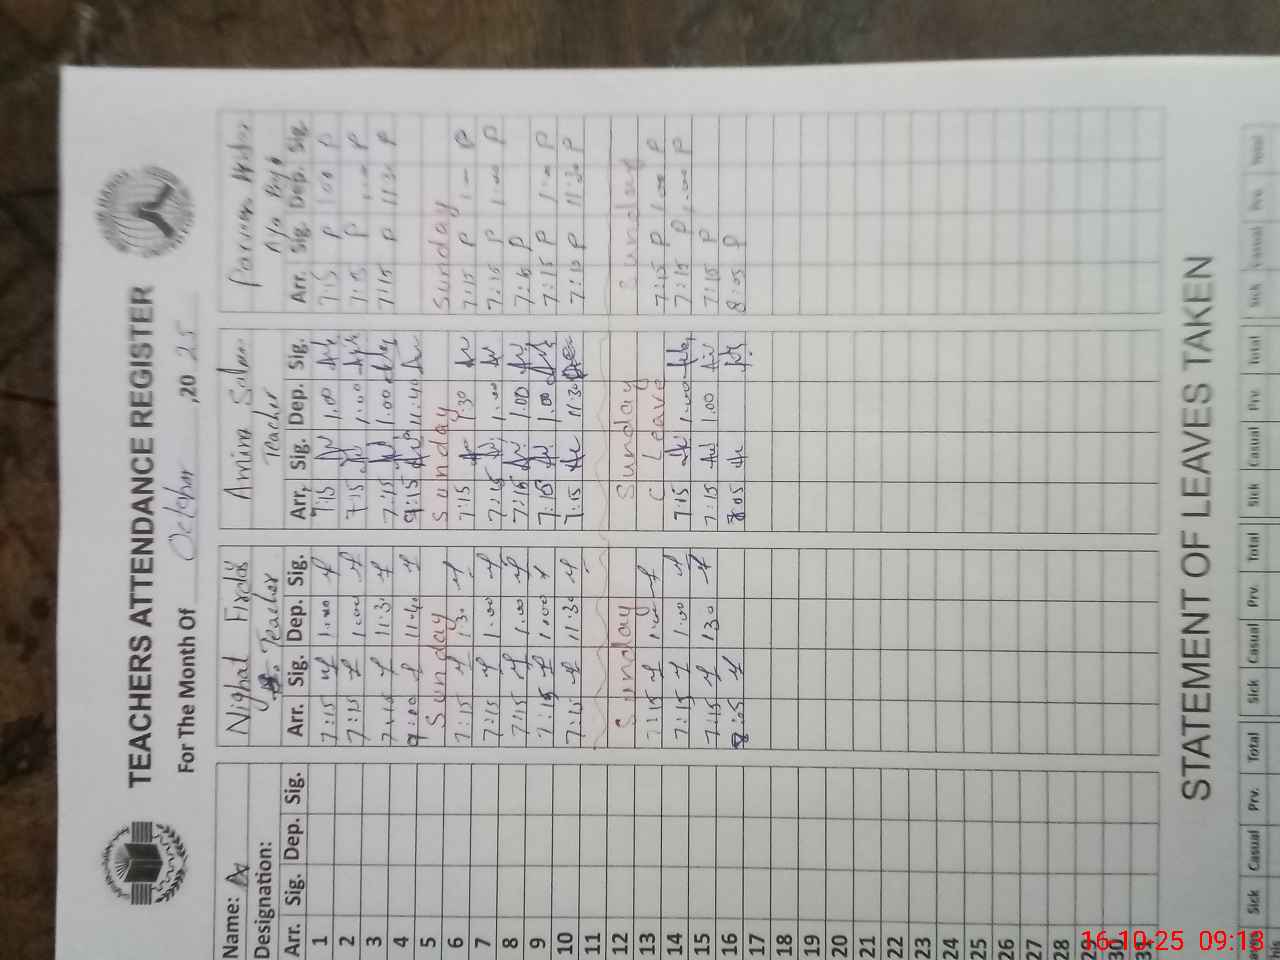 TEACHERS ATTENDANCE REGISTER
For The Month Of October ,20 25
Name: Nighat Amina
Designation: Teacher Teacher
Arr. Sig. Dep. Sig. Arr. Sig. Dep. Sig. Arr. Sig. Dep. Sig. Arr. Sig. Dep. Sig.
1 7:15 1:00 7:15 1.00 7:15 P 1:00 P
2 7:15 1:00 7:15 1:00 7:15 P 1:00 P
3 7:15 11:30 7:15 1:00 7:15 P 11:30 P
4 9:00 11:40 9:15 11:40
5 Sunday Sunday Sunday
6 7:15 1:30 7:15 1:30 7:15 P 1:00 P
7 7:15 1:00 7:15 1:00 7:15 P 1:00 P
8 7:15 1:00 7:15 1.00 7:15 P
9 7:15 1:00 7:15 1.00 7:15 P 1:00 P
10 7:15 11:30 7:15 11:30 7:10 P 11:30 P
11
12 Sunday Sunday Sunday
13 7:15 1:00 C Leave 7:15 P 1:00 P
14 7:15 1:00 7:15 1:00 7:15 P 1:00 P
15 7:15 1:30 7:15 1.00 7:15 P
16 8:05 8:05 8:05 P
17
18
19
20
21
22
23
24
25
26
27
28
29
30
31
STATEMENT OF LEAVES TAKEN
Sick Casual Prv. Total Sick Casual Prv. Total Sick Casual Prv Total Sick Casual Prv Total
16-10-25 09:18